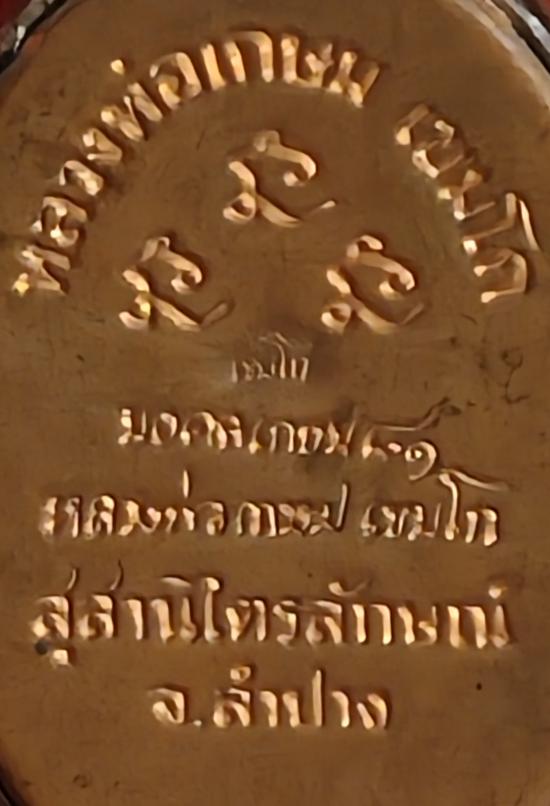 หลวงพ่อเกษม เขมโก
เขมโก
มงคลเกษม ๘๑
หลวงพ่อเกษม เขมโก
สุสานไตรลักษณ์
จ.ลำปาง